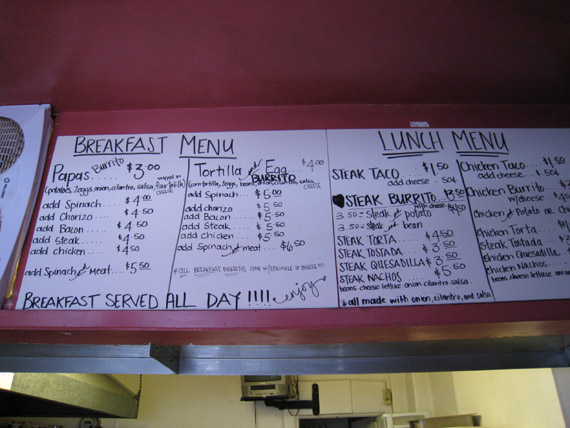 BREAKFAST MENU
Papas Burrito $3.00
(potatoes, 2eggs, onion, cilantro, salsa, flour tortilla)
wrapped in
CHEESE
add Spinach.... $4.00
add Chorizo... $4.50
add Bacon... $4.50
add Steak.... $4.50
add chicken... $4.50
add Spinach & Meat.... $5.50
Tortilla & Egg $4.00
BURRITO
(corn tortilla, 2eggs, beans, onion, cilantro, salsa
CHEESE
add Spinach..... $5.00
add chorizo $5.50
add Bacon $5.50
add Steak.. $5.50
add chicken $5.50
add Spinach & meat $6.50
* ALL BREAKFAST BURRITOS COME W/SPRINKLE OF CHEESE
BREAKFAST SERVED ALL DAY !!!! enjoy
LUNCH MENU
STEAK TACO....... $1.50
add cheese . 50¢
STEAK BURRITO $3.50
with cheese $4.00
3.50 = steak & potato
3.50 = steak & bean
STEAK TORTA.... $4.50
STEAK TOSTADA... $3.50
STEAK QUESADILLA $3.50
STEAK NACHOS $5.50
beans cheese lettuce onion cilantro salsa
* all made with onion, cilantro, and salsa
Chicken Taco $1.50
add cheese . 50¢
Chicken Burrito
w/cheese
Chicken & Potato or
Chicken Torta
Steak Tostada
Chicken Quesadilla
Chicken Nachos
beans cheese lettuce